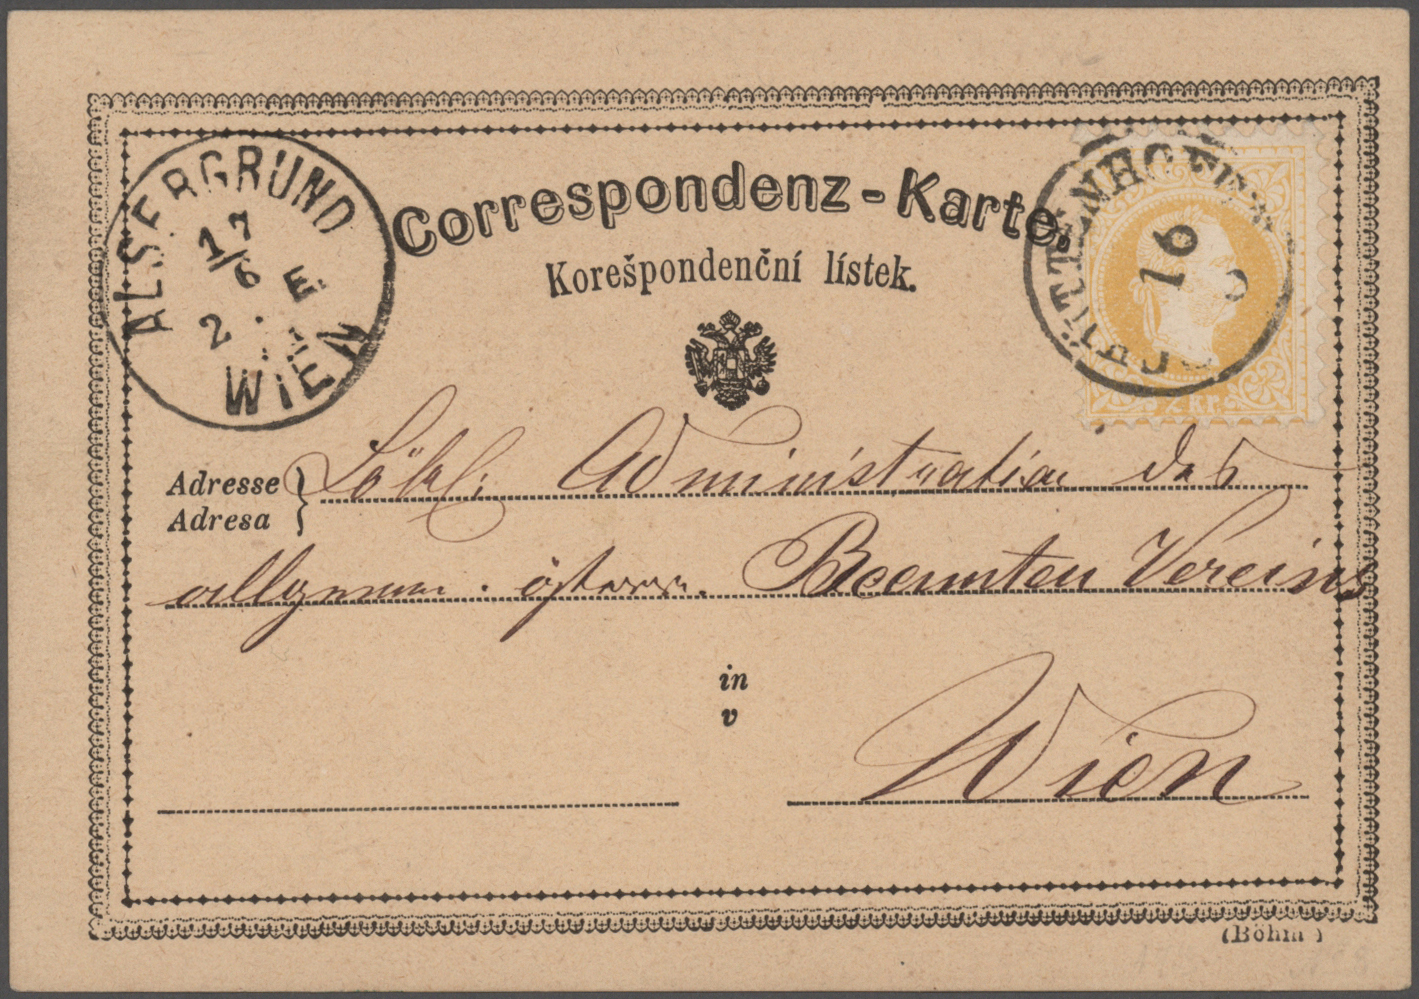 Correspondenz-Karte.
Korešpondenční lístek.
ALSERGRUND
17/6
2. E.
WIEN
16
2 Kr.
Adresse
Adresa
Löbl. Administration des
allgemein. österr. Beamten Vereins
in
v
Wien
(Böhm)